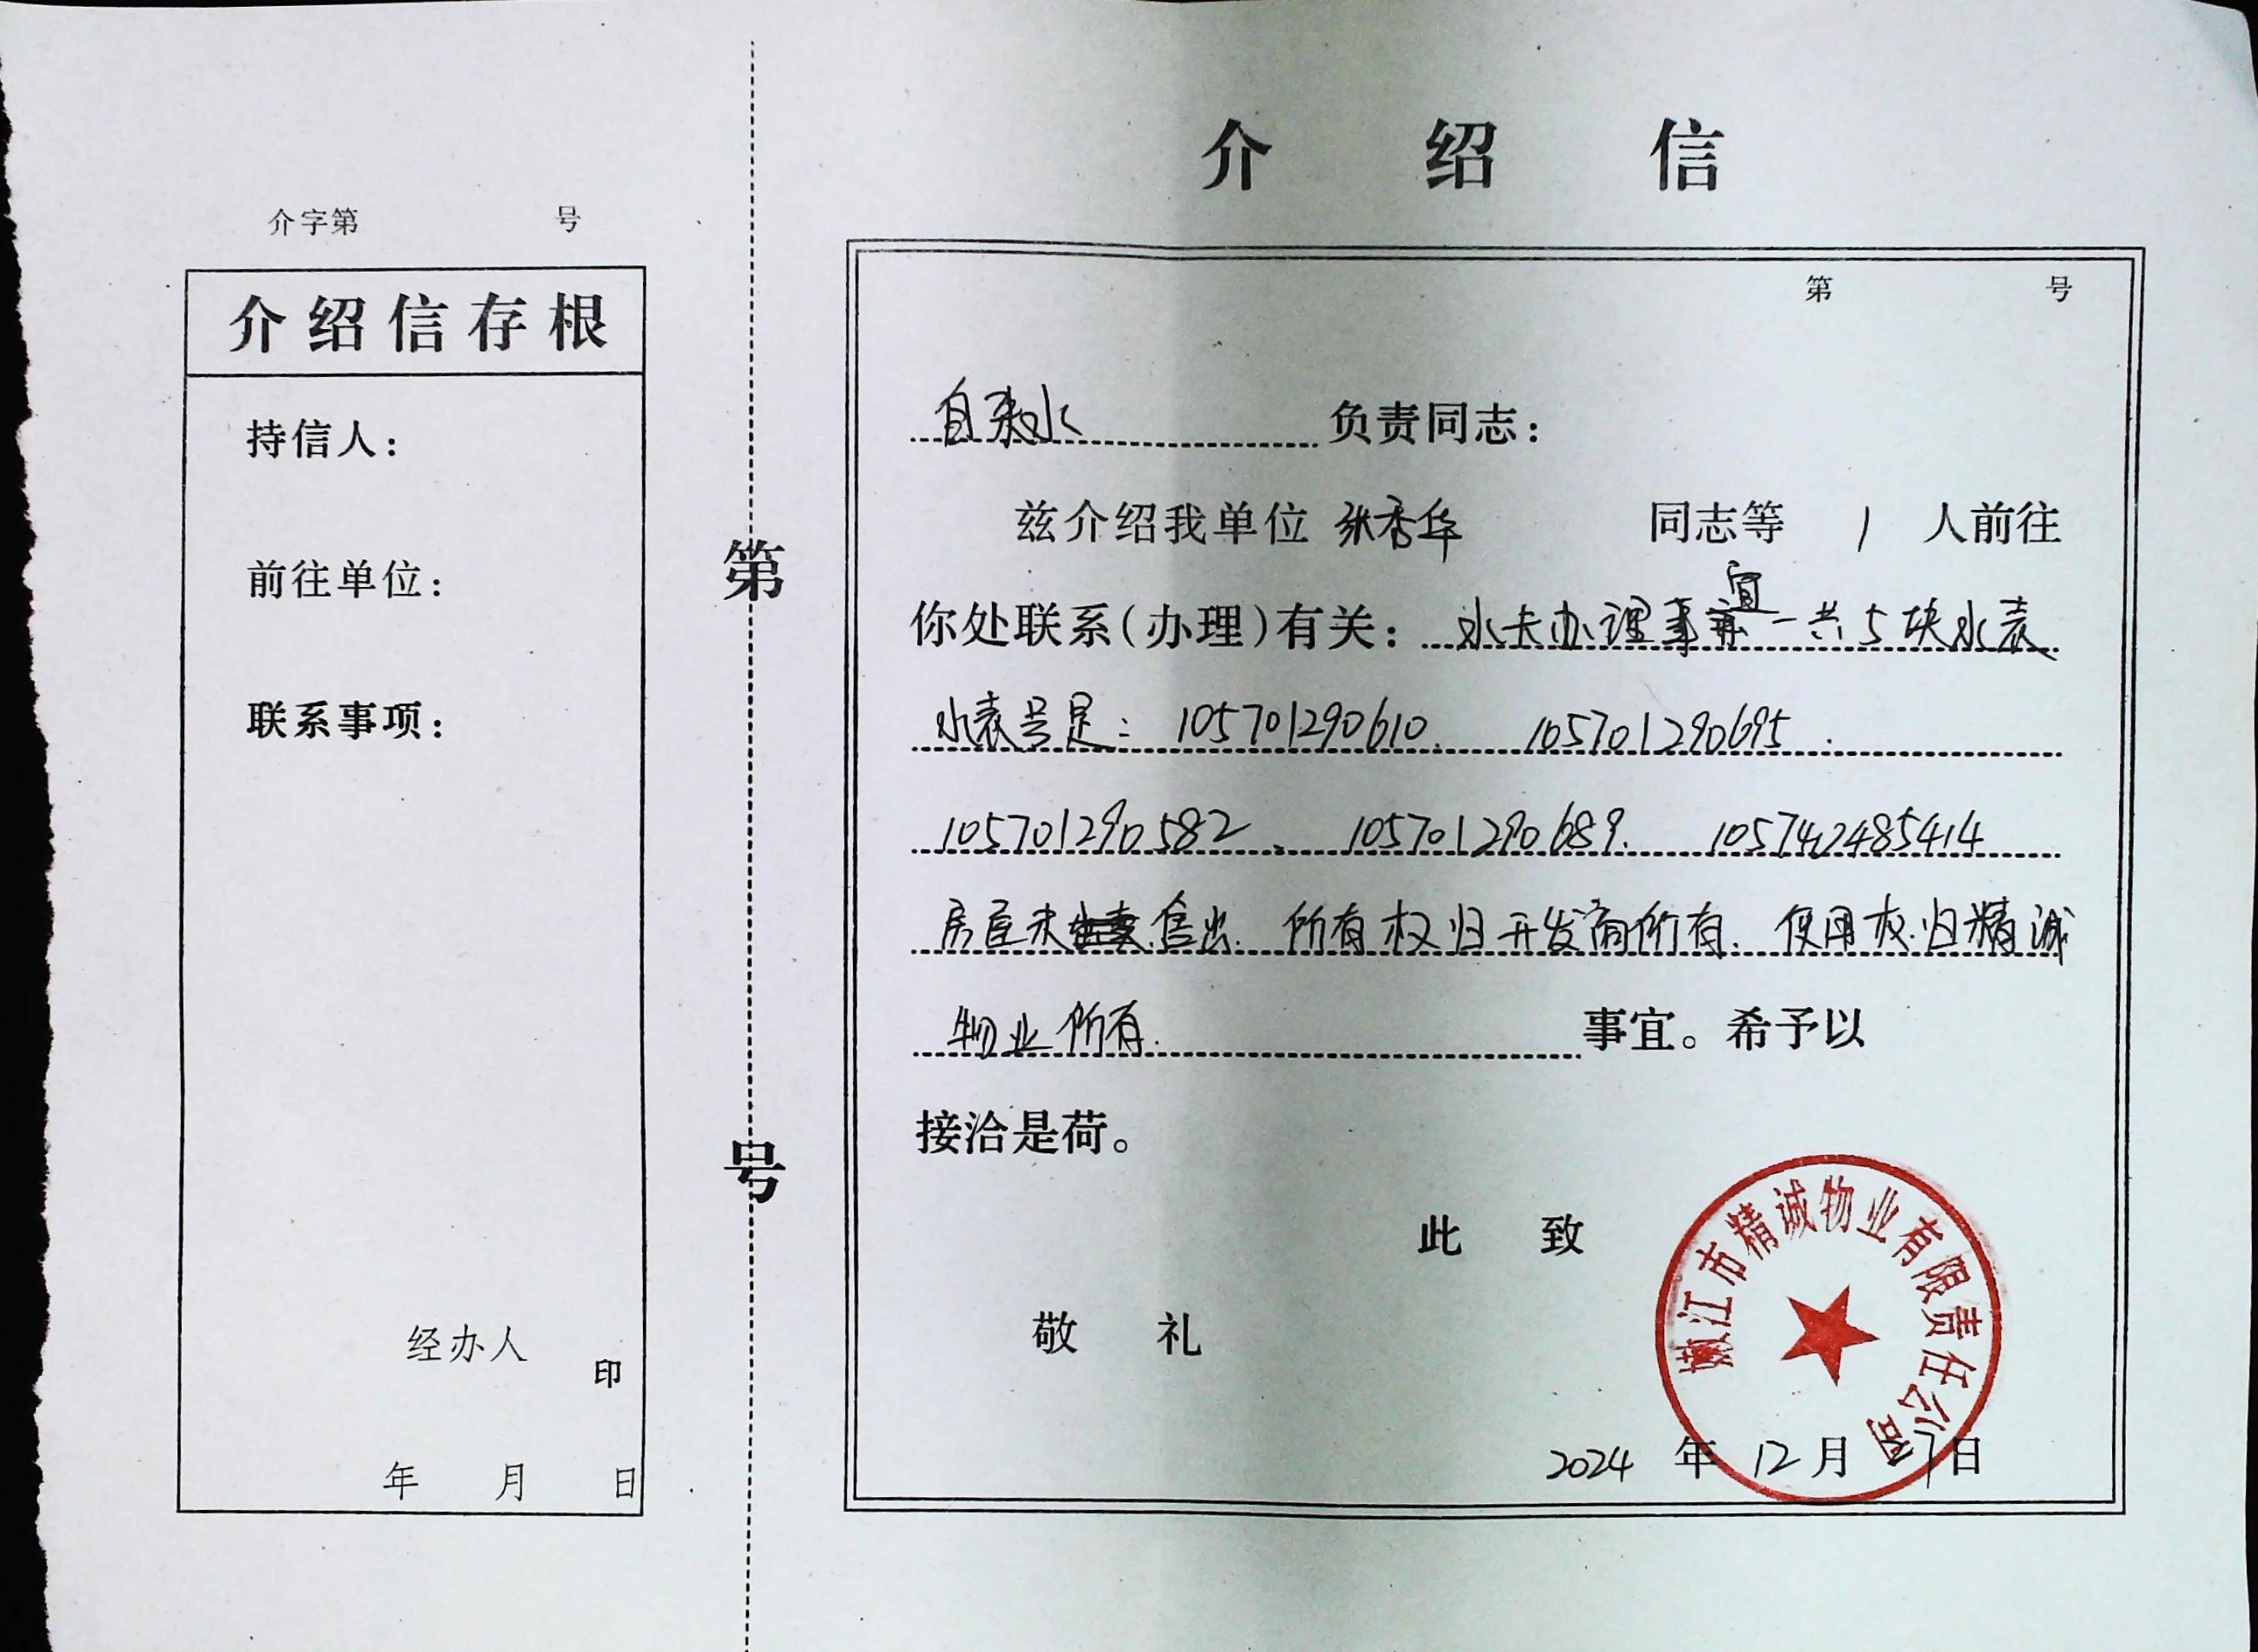 介字第 号
介绍信存根
持信人：
前往单位：
联系事项：
经办人
印
年 月 日
第
号
介 绍 信
第 号
自来水 负责同志：
兹介绍我单位 张秀华 同志等 1 人前往
你处联系（办理）有关：水卡办理事宜一共5块水表
水表号是：105701290610、 105701290695、
105701290582、 105701290689、 105742485414
房屋未售出、所有权归开发商所有、使用权归精诚
物业所有. 事宜。希予以
接洽是荷。
此 致
敬 礼
嫩江市精诚物业有限责任公司
2024 年 12 月 27 日